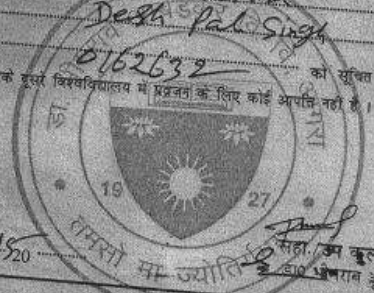 Desh Pal Singh
0162632 को सूचित
के दूसरे विश्वविद्यालय में प्रव्रजन के लिए कोई आपत्ति नहीं है ।
19 27
तमसो मा ज्योति
सहा./उप कुल
डा० भीमराव